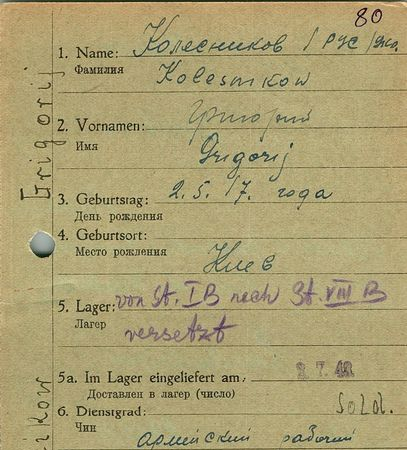 80
1. Name: Колесников / рус /
Фамилия Kolesnikow
2. Vornamen: Григорий
Имя Grigorij
3. Geburtstag: 2. 5. 17. года
День рождения
4. Geburtsort:
Место рождения Киев
5. Lager: von St. I B nach St. VIII B
Лагер versetzt
5a. Im Lager eingeliefert am: 7. 42
Доставлен в лагер (число)
6. Dienstgrad: Sold.
Чин армейский рабочий
Grigorij
ikow